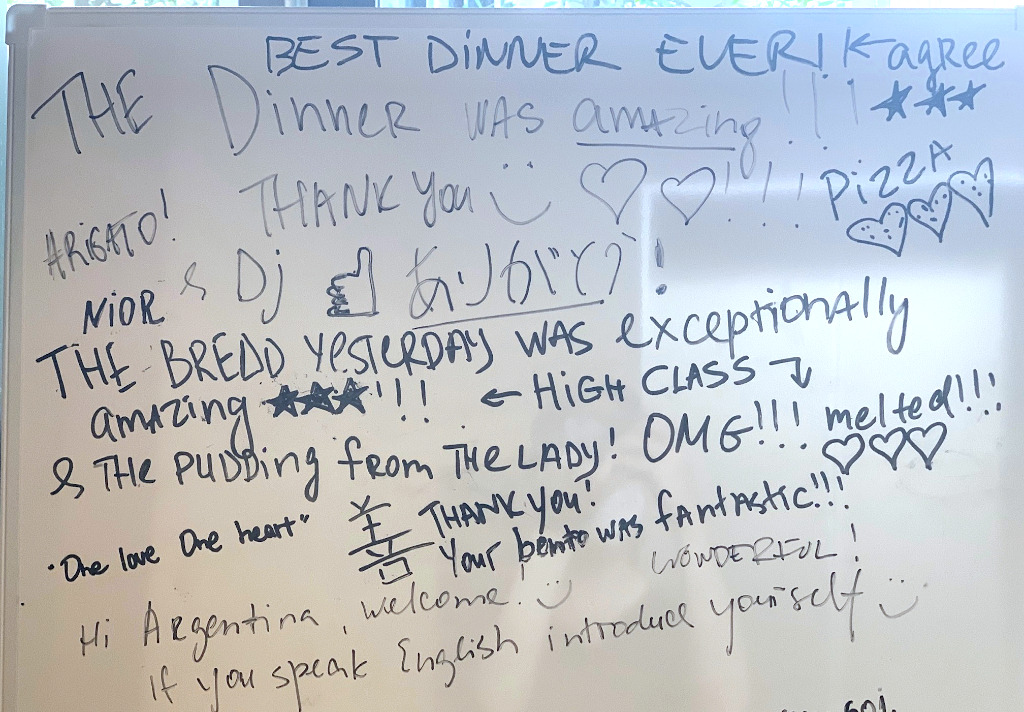 BEST DINNER EVER! ← agree
THE Dinner WAS amazing!!! ★★★
THANK you ♡♡!!! PiZZA
ARiGATO!
NiOR & Dj ありがとう!
THE BREDD YESTERDAY WAS exceptionally
amazing ★★★!!! ← HiGH CLASS
& THE PUDDing from THE LADY! OMG!!! melted!!!
"One love One heart" 善 THANK YOU!
Your bento WAS fantastic!!!
WONDERFUL!
Hi Argentina, welcome!
If you speak English introduce yourself